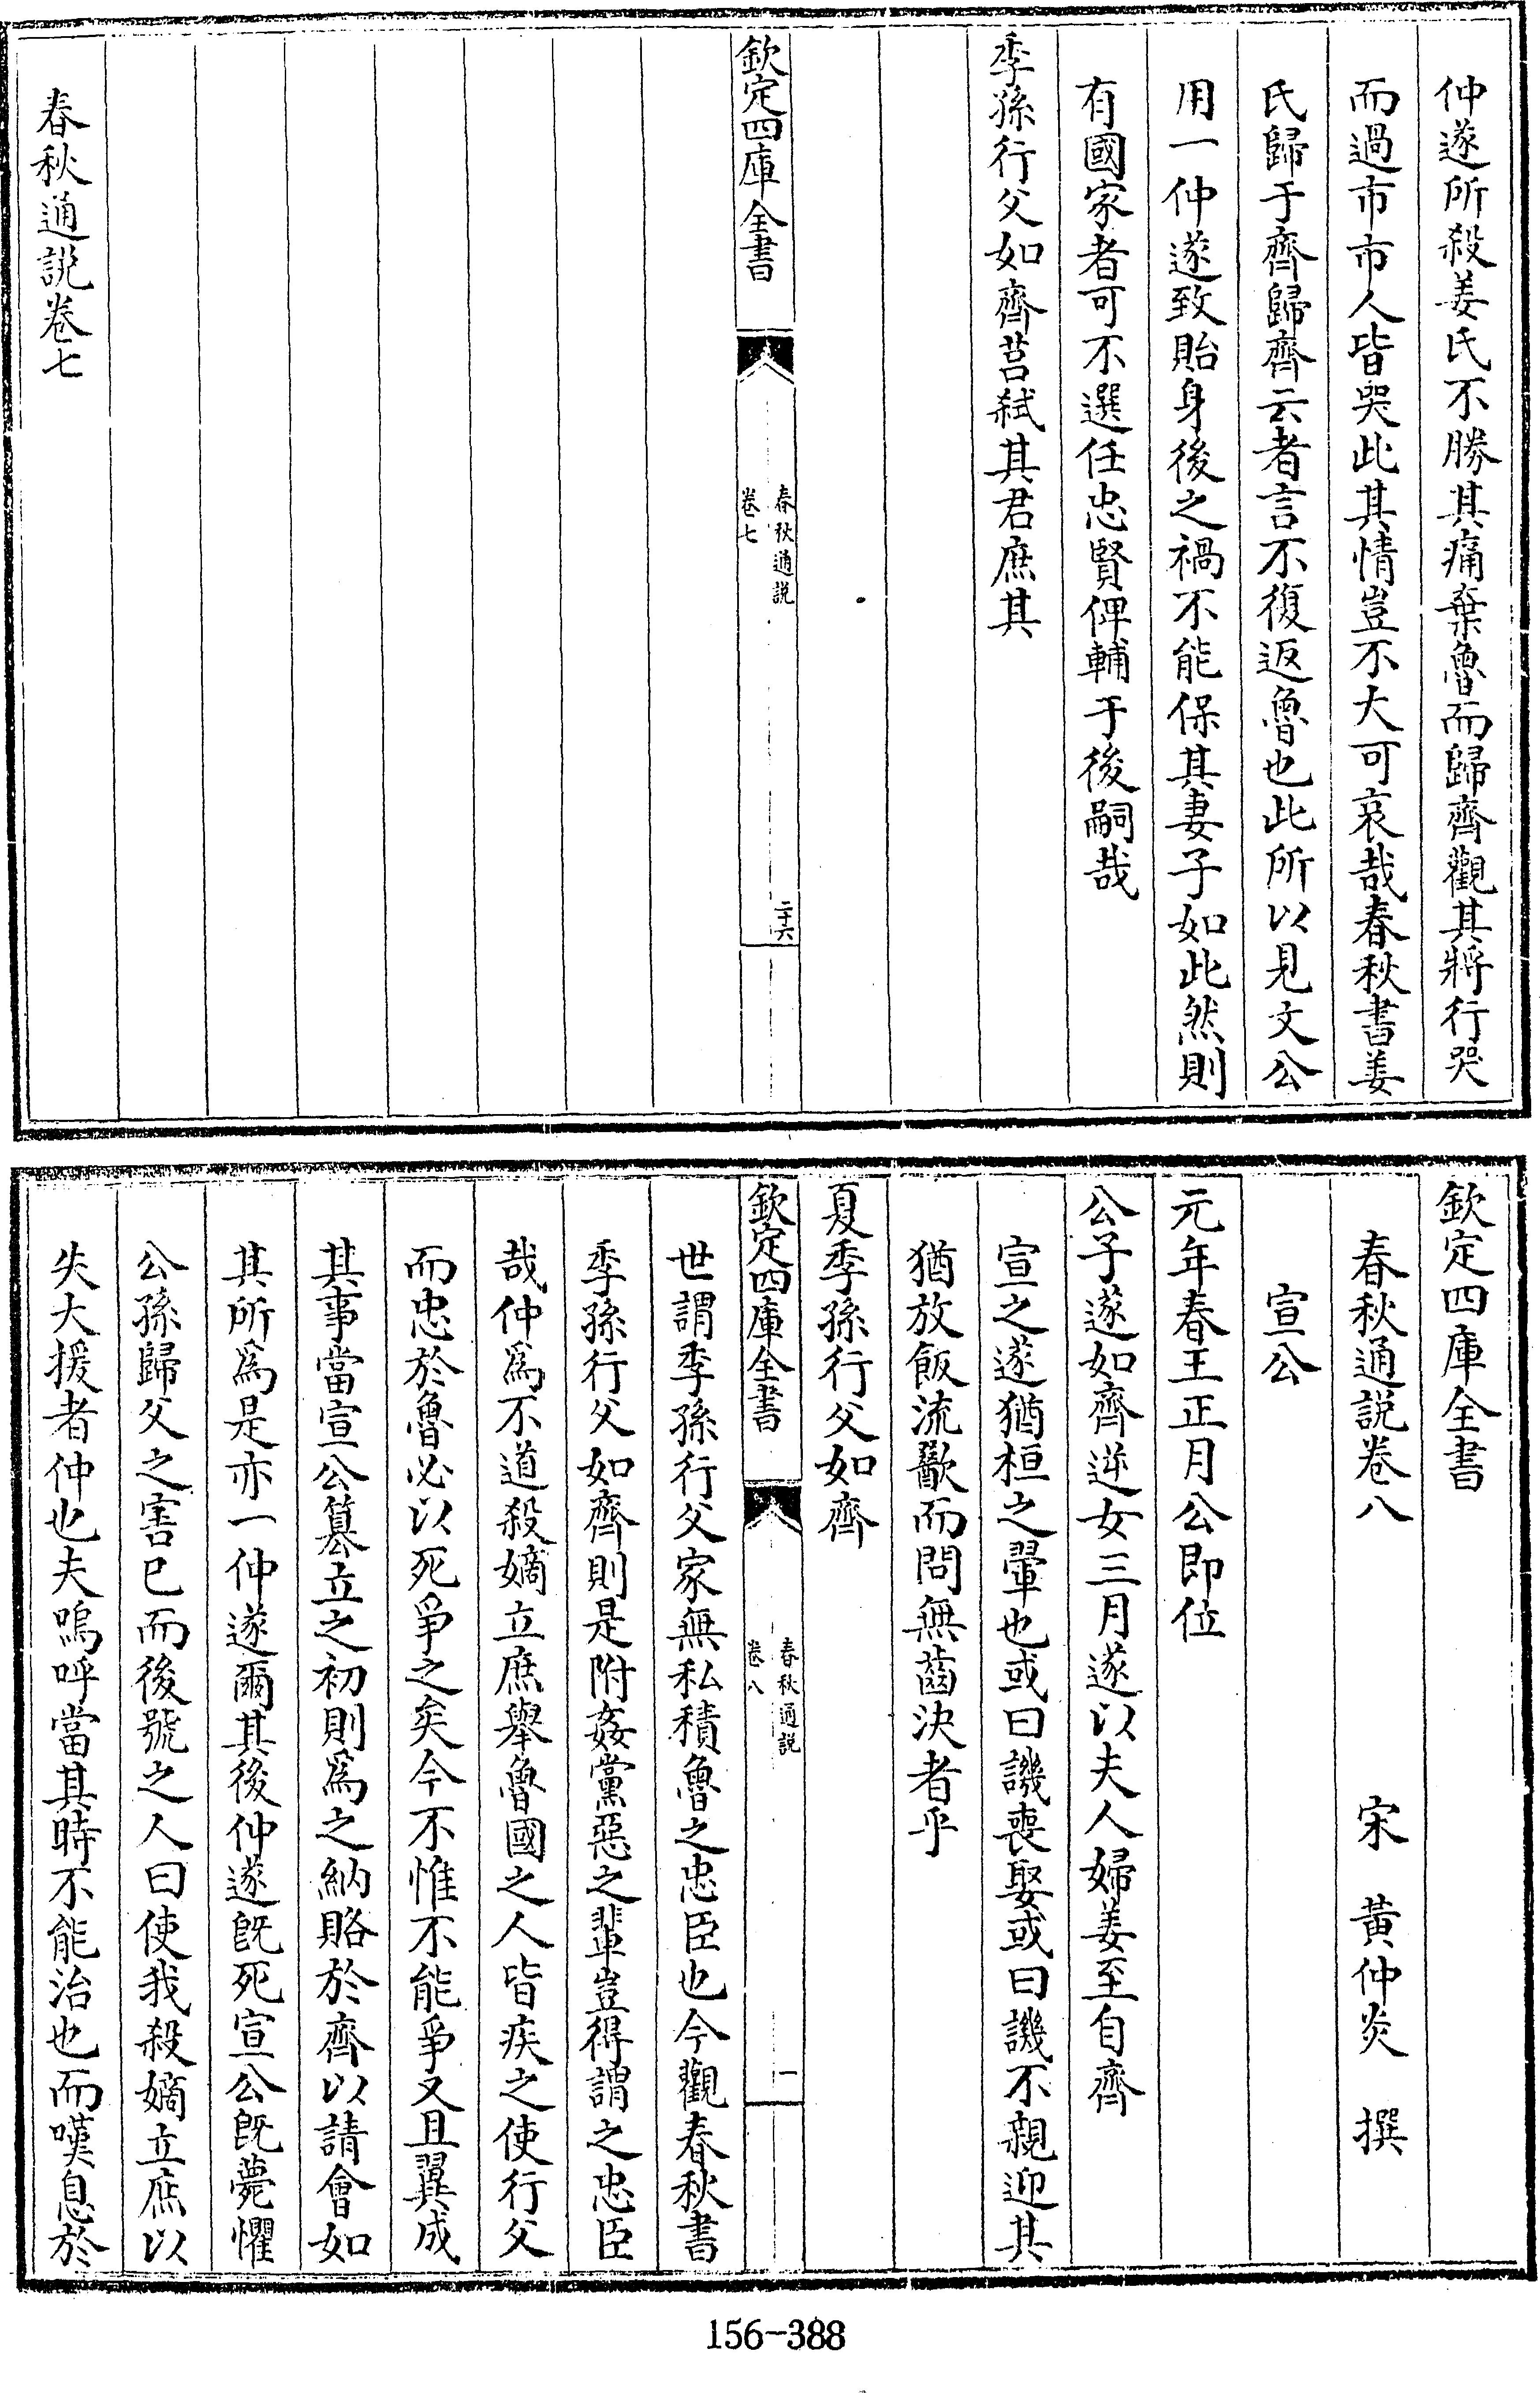 仲遂所殺姜氏不勝其痛棄魯而歸齊觀其將行哭
而過市市人皆哭此其情豈不大可哀哉春秋書姜
氏歸于齊歸齊云者言不復返魯也此所以見文公
用一仲遂致貽身後之禍不能保其妻子如此然則
有國家者可不選任忠賢俾輔于後嗣哉
季孫行父如齊莒弑其君庶其
欽定四庫全書
春秋通説
卷七
二十六
春秋通説卷七
欽定四庫全書
春秋通説卷八
宋 黃仲炎 撰
宣公
元年春王正月公即位
公子遂如齊逆女三月遂以夫人婦姜至自齊
宣之遂猶桓之翬也或曰譏喪娶或曰譏不親迎其
猶放飯流歠而問無齒決者乎
夏季孫行父如齊
欽定四庫全書
春秋通説
卷八
一
世謂季孫行父家無私積魯之忠臣也今觀春秋書
季孫行父如齊則是附姦黨惡之輩豈得謂之忠臣
哉仲爲不道殺嫡立庶舉魯國之人皆疾之使行父
而忠於魯必以死爭之矣今不惟不能爭又且翼成
其事當宣公簒立之初則爲之納賂於齊以請會如
其所爲是亦一仲遂爾其後仲遂旣死宣公旣薨懼
公孫歸父之害已而後號之人曰使我殺嫡立庶以
失大援者仲也夫嗚呼當其時不能治也而嘆息於
156-388